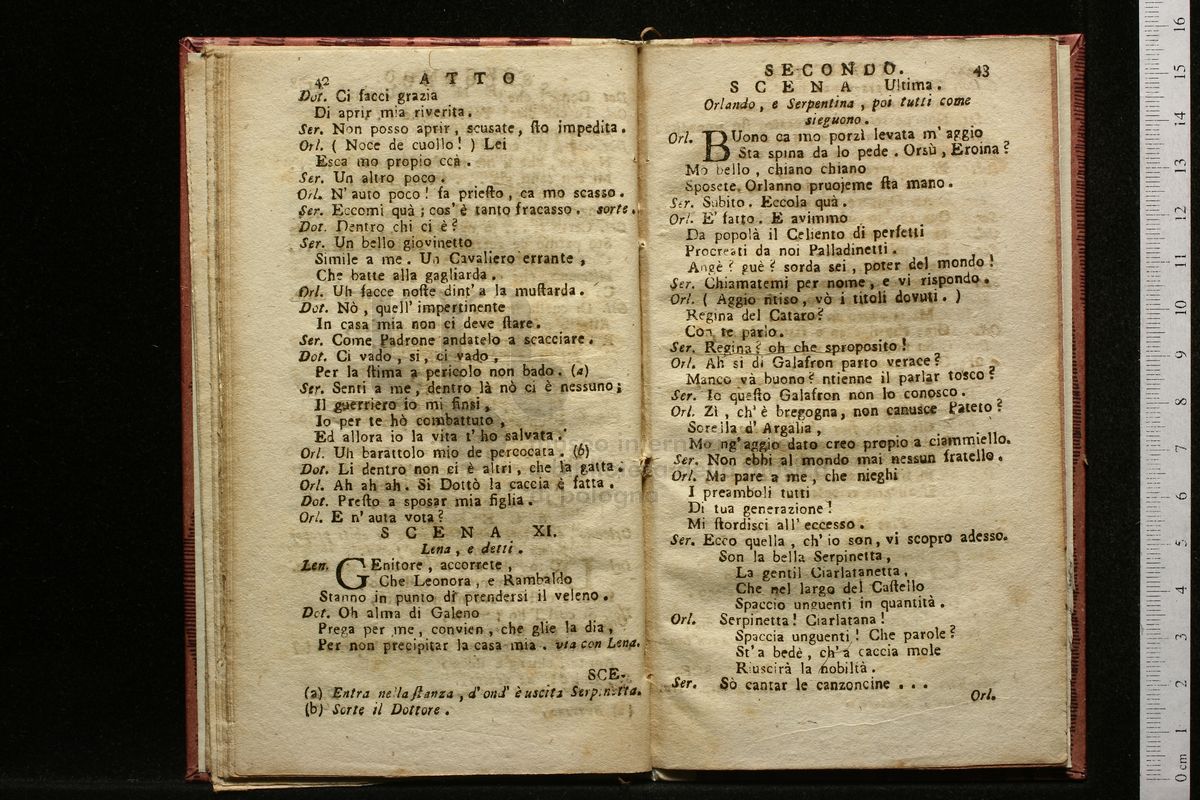 42 ATTO
Dot. Ci facci grazia
Di aprir mia riverita.
Ser. Non posso aprir, scusate, sto impedita.
Orl. ( Noce de cuollo! ) Lei
Esca mo propio ccà.
Ser. Un altro poco.
Orl. N'auto poco! fa priesto, ca mo scasso.
Ser. Eccomi quà; cos'è tanto fracasso. sorte.
Dot. Dentro chi ci è?
Ser. Un bello giovinetto
Simile a me. Un Cavaliero errante,
Che batte alla gagliarda.
Orl. Uh facce noste dint'a la mustarda.
Dot. Nò, quell'impertinente
In casa mia non ci deve stare.
Ser. Come Padrone andatelo a scacciare.
Dot. Ci vado, si, ci vado,
Per la stima a pericolo non bado. (a)
Ser. Senti a me, dentro là nò ci è nessuno;
Il guerriero io mi finsi,
Io per te hò combattuto,
Ed allora io la vita t'ho salvata.
Orl. Uh barattolo mio de percocata. (b)
Dot. Li dentro non ci è altri, che la gatta.
Orl. Ah ah ah. Si Dottò la caccia è fatta.
Dot. Presto a sposar mia figlia.
Orl. E n'auta vota?
SCENA XI.
Lena, e detti.
Len. GEnitore, accorrete,
Che Leonora, e Rambaldo
Stanno in punto di prendersi il veleno.
Dot. Oh alma di Galeno
Prega per me, convien, che glie la dia,
Per non precipitar la casa mia. via con Lena.
SCE-
(a) Entra nella stanza, d'ond'è uscita Serpinetta.
(b) Sorte il Dottore.
SECONDO. 43
SCENA Ultima.
Orlando, e Serpentina, poi tutti come
sieguono.
Orl. BUono ca mo porzì levata m'aggio
Sta spina da lo pede. Orsù, Eroina?
Mo bello, chiano chiano
Sposete. Orlanno pruojeme sta mano.
Ser. Subito. Eccola quà.
Orl. E' fatto. E avimmo
Da popolà il Celiento di perfetti
Procreati da noi Palladinetti.
Angè? guè? sorda sei, poter del mondo!
Ser. Chiamatemi per nome, e vi rispondo.
Orl. ( Aggio ntiso, vò i titoli dovuti. )
Regina del Cataro?
Con te parlo.
Ser. Regina? oh che sproposito!
Orl. Ah si di Galafron parto verace?
Manco và buono? ntienne il parlar tosco?
Ser. Io questo Galafron non lo conosco.
Orl. Zì, ch'è bregogna, non canusce Pateto?
Sorella d'Argalia,
Mo ng'aggio dato creo propio a ciammiello.
Ser. Non ebbi al mondo mai nessun fratello.
Orl. Ma pare a me, che nieghi
I preamboli tutti
Di tua generazione!
Mi stordisci all'eccesso.
Ser. Ecco quella, ch'io son, vi scopro adesso.
Son la bella Serpinetta,
La gentil Ciarlatanetta,
Che nel largo del Castello
Spaccio unguenti in quantità.
Orl. Serpinetta! Ciarlatana!
Spaccia unguenti! Che parole?
St'a bedè, ch'a caccia mole
Riuscirà la nobiltà.
Ser. Sò cantar le canzoncine ...
Orl.
0 cm 1 2 3 4 5 6 7 8 9 10 11 12 13 14 15 16